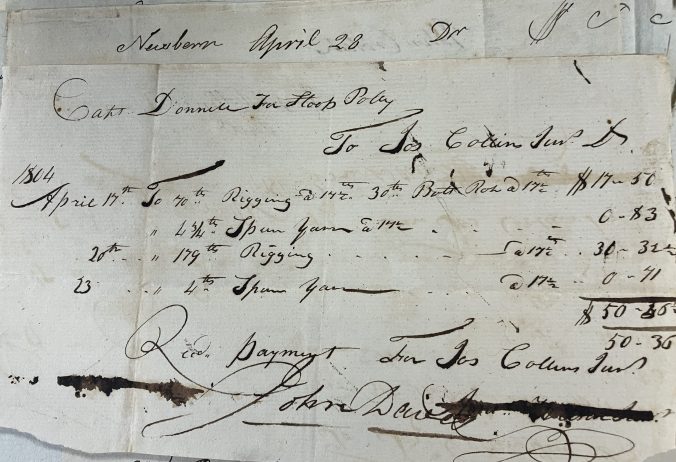 Newbern April 28 Dr
Capt Donnell For Sloop Polly
To Jos Collins Junr Dr
1804
April 17th To 70th Rigging a 17½cts 30th Bolt Rope a 17½ $17-50
" 4¾th Spun Yarn a 17½ 0-83
20th " 179th Rigging a 17½ 31-32½
23 " 4th Spun Yarn a 17½ 0-71
$50-36½
50-36
Recd payment For Jos Collins Junr
John David